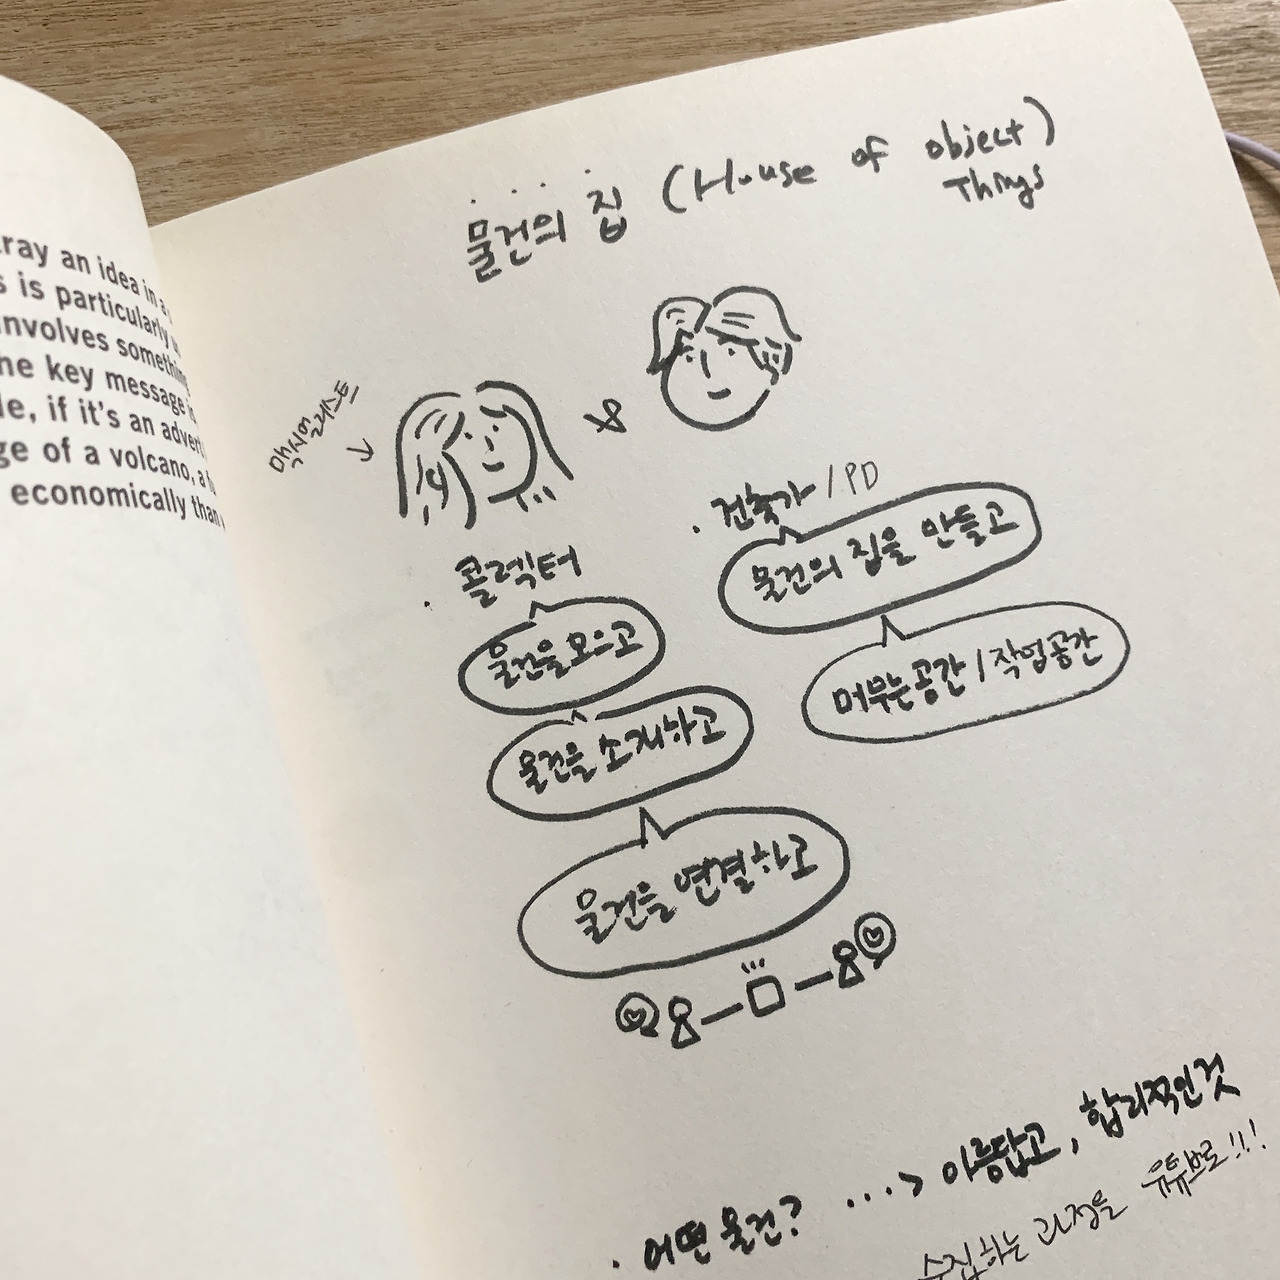 ray an idea in a
s is particularly
nvolves something
he key message i
le, if it's an adver
ge of a volcano, a
economically than
물건의 집 (House of object)
Things
맥시멀리스트
&
콜렉터
물건을 모으고
물건을 소개하고
물건을 연결하고
건축가 / PD
물건의 집을 만들고
머무는공간 / 작업공간
어떤 물건? ...> 아름답고, 합리적인것
수집하는 과정을 유튜브로!!!